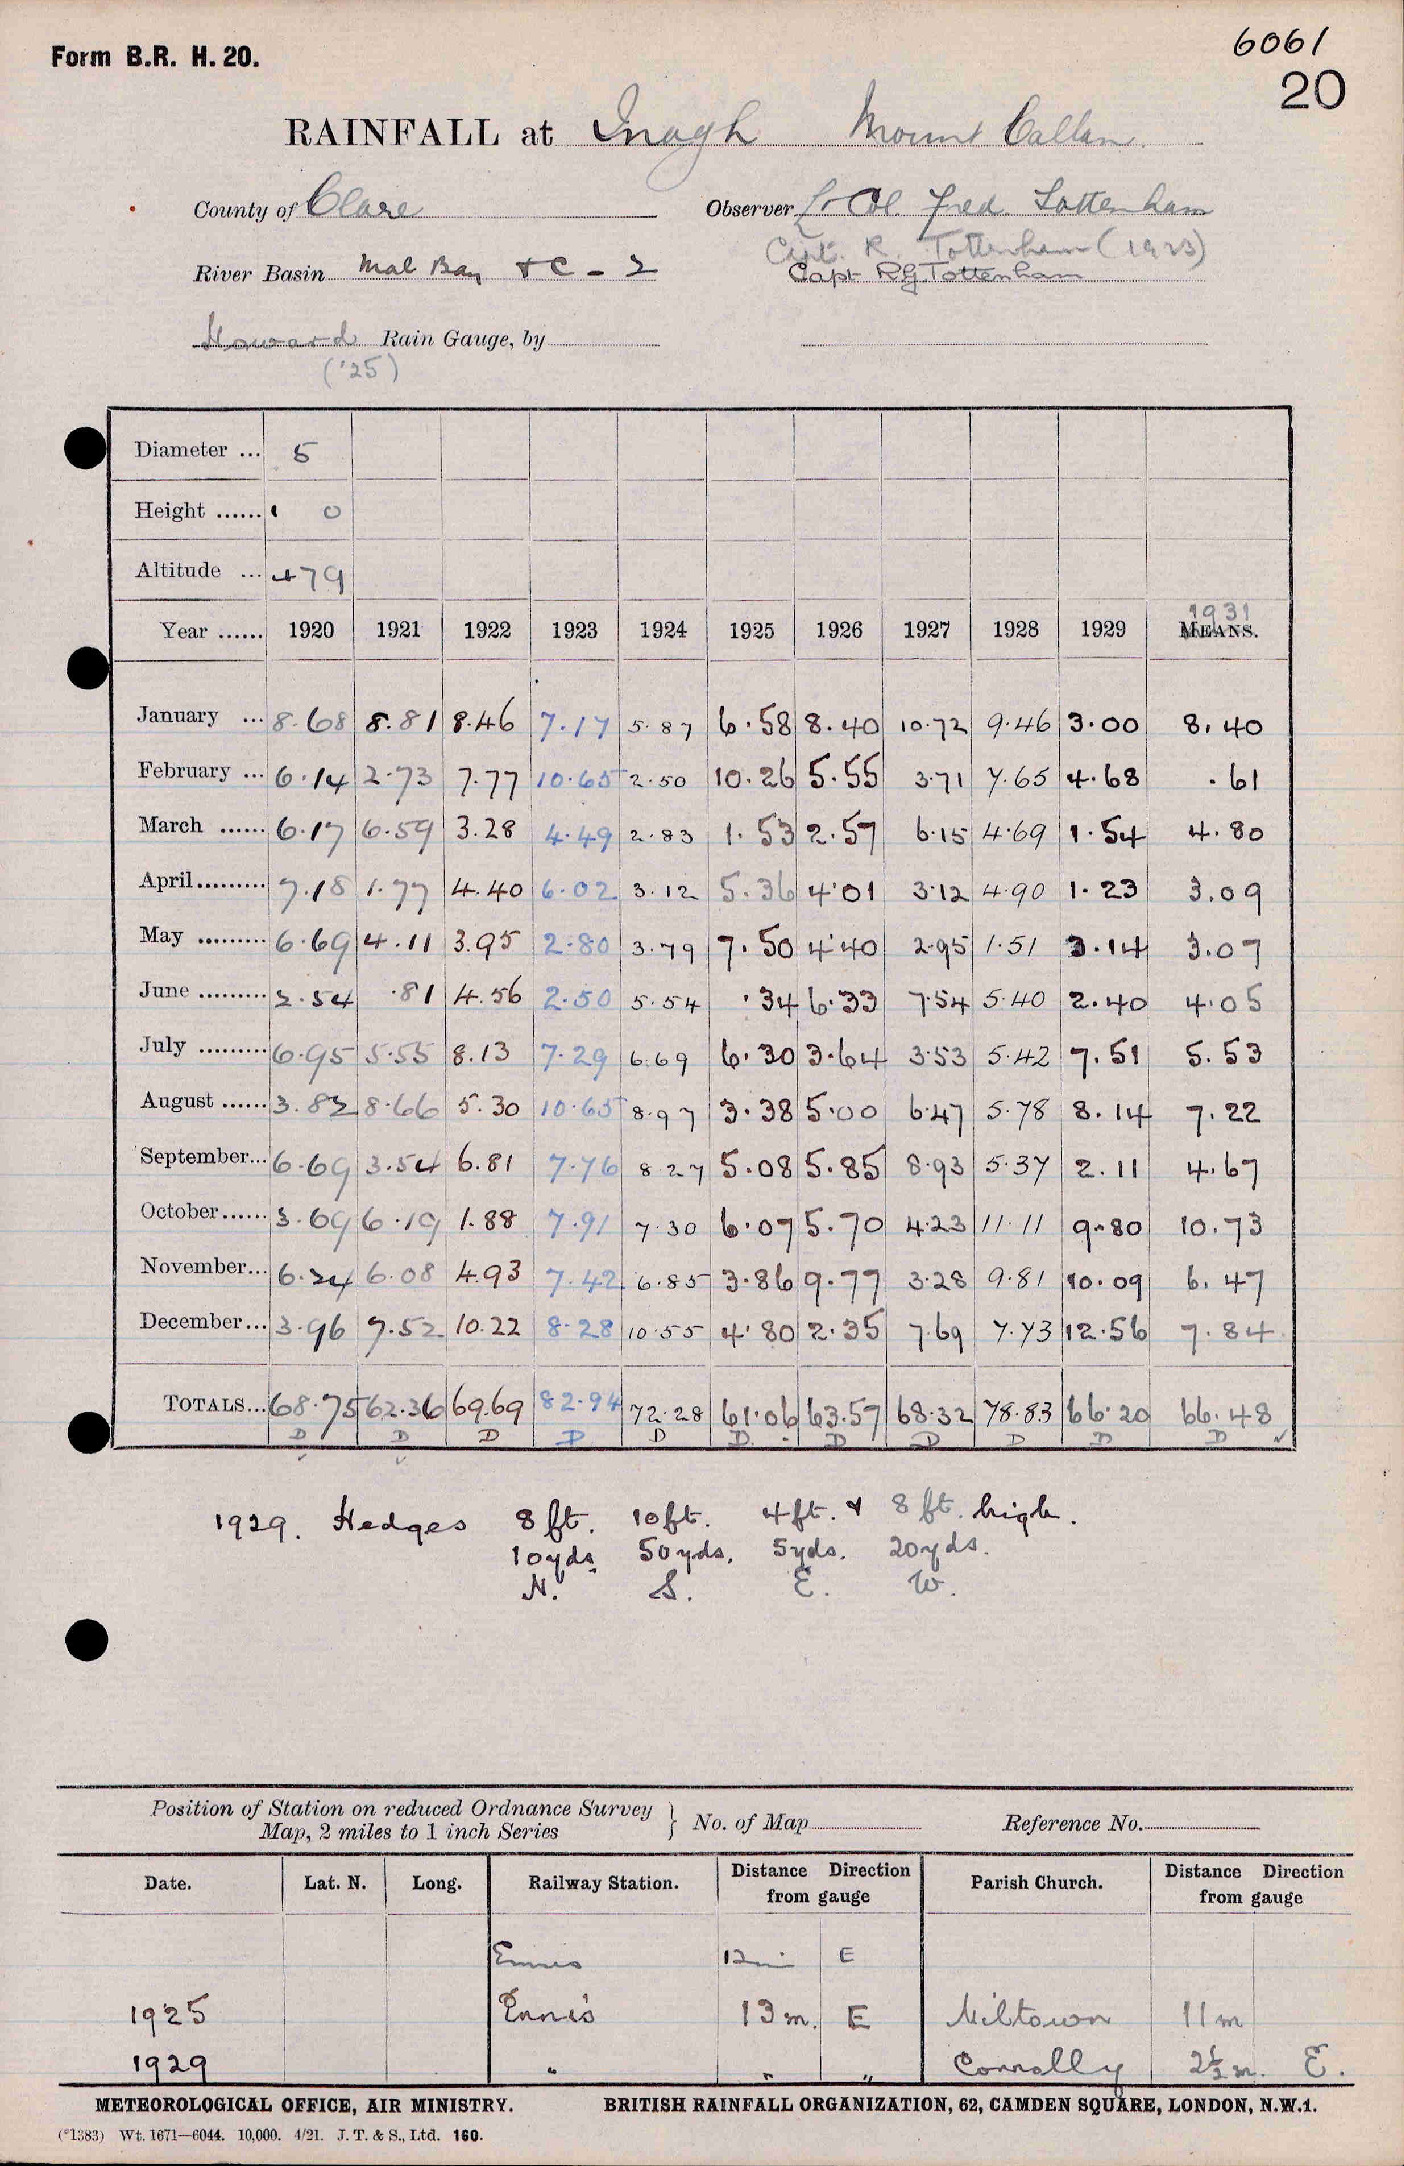 Form B.R. H. 20.
6061
20
RAINFALL at Inagh Mount Callan.
County of Clare Observer Lt Col. Fred. Tottenham
Capt. R. Tottenham (1923)
River Basin Mal Bay + C - 2 Capt RG Tottenham
Howard Rain Gauge, by
('25)
Diameter ... 5
Height ...... 1 0
Altitude ... 479
1931
Year ...... 1920 1921 1922 1923 1924 1925 1926 1927 1928 1929 MEANS.
January ... 8.68 8.81 8.46 7.17 5.87 6.58 8.40 10.72 9.46 3.00 8.40
February ... 6.14 2.73 7.77 10.65 2.50 10.26 5.55 3.71 7.65 4.68 .61
March ...... 6.17 6.59 3.28 4.49 2.83 1.53 2.57 6.15 4.69 1.54 4.80
April......... 7.18 1.77 4.40 6.02 3.12 5.36 4.01 3.12 4.90 1.23 3.09
May ......... 6.69 4.11 3.95 2.80 3.79 7.50 4.40 2.95 1.51 3.14 3.07
June ......... 2.54 .81 4.56 2.50 5.54 .34 6.33 7.54 5.40 2.40 4.05
July ......... 6.95 5.55 8.13 7.29 6.69 6.30 3.64 3.53 5.42 7.51 5.53
August ...... 3.82 8.66 5.30 10.65 8.97 3.38 5.00 6.47 5.78 8.14 7.22
September... 6.69 3.54 6.81 7.76 8.27 5.08 5.85 8.93 5.37 2.11 4.67
October...... 3.69 6.19 1.88 7.91 7.30 6.07 5.70 4.23 11.11 9.80 10.73
November... 6.24 6.08 4.93 7.42 6.85 3.86 9.77 3.28 9.81 10.09 6.47
December... 3.96 7.52 10.22 8.28 10.55 4.80 2.35 7.69 7.73 12.56 7.84
TOTALS... 68.75 62.36 69.69 82.94 72.28 61.06 63.57 68.32 78.83 66.20 66.48
D D D D D D. D D D D D
1929. Hedges 8 ft. 10 ft. 4 ft. & 8 ft. high.
10 yds. 50 yds. 5 yds. 20 yds.
N. S. E. W.
Position of Station on reduced Ordnance Survey
Map, 2 miles to 1 inch Series } No. of Map Reference No.
Date. Lat. N. Long. Railway Station. Distance Direction from gauge Parish Church. Distance Direction from gauge
Ennis 12 mi E
1925 Ennis 13 m. E Miltown 11 m
1929 " " " Connolly 2½ m. E.
METEOROLOGICAL OFFICE, AIR MINISTRY. BRITISH RAINFALL ORGANIZATION, 62, CAMDEN SQUARE, LONDON, N.W.1.
(*1383) Wt. 1671—6044. 10,000. 4/21. J. T. & S., Ltd. 160.